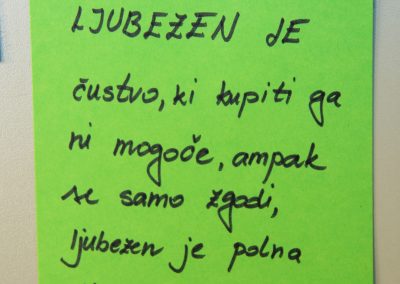 LJUBEZEN JE
čustvo, ki kupiti ga
ni mogoče, ampak
se samo zgodi,
ljubezen je polna